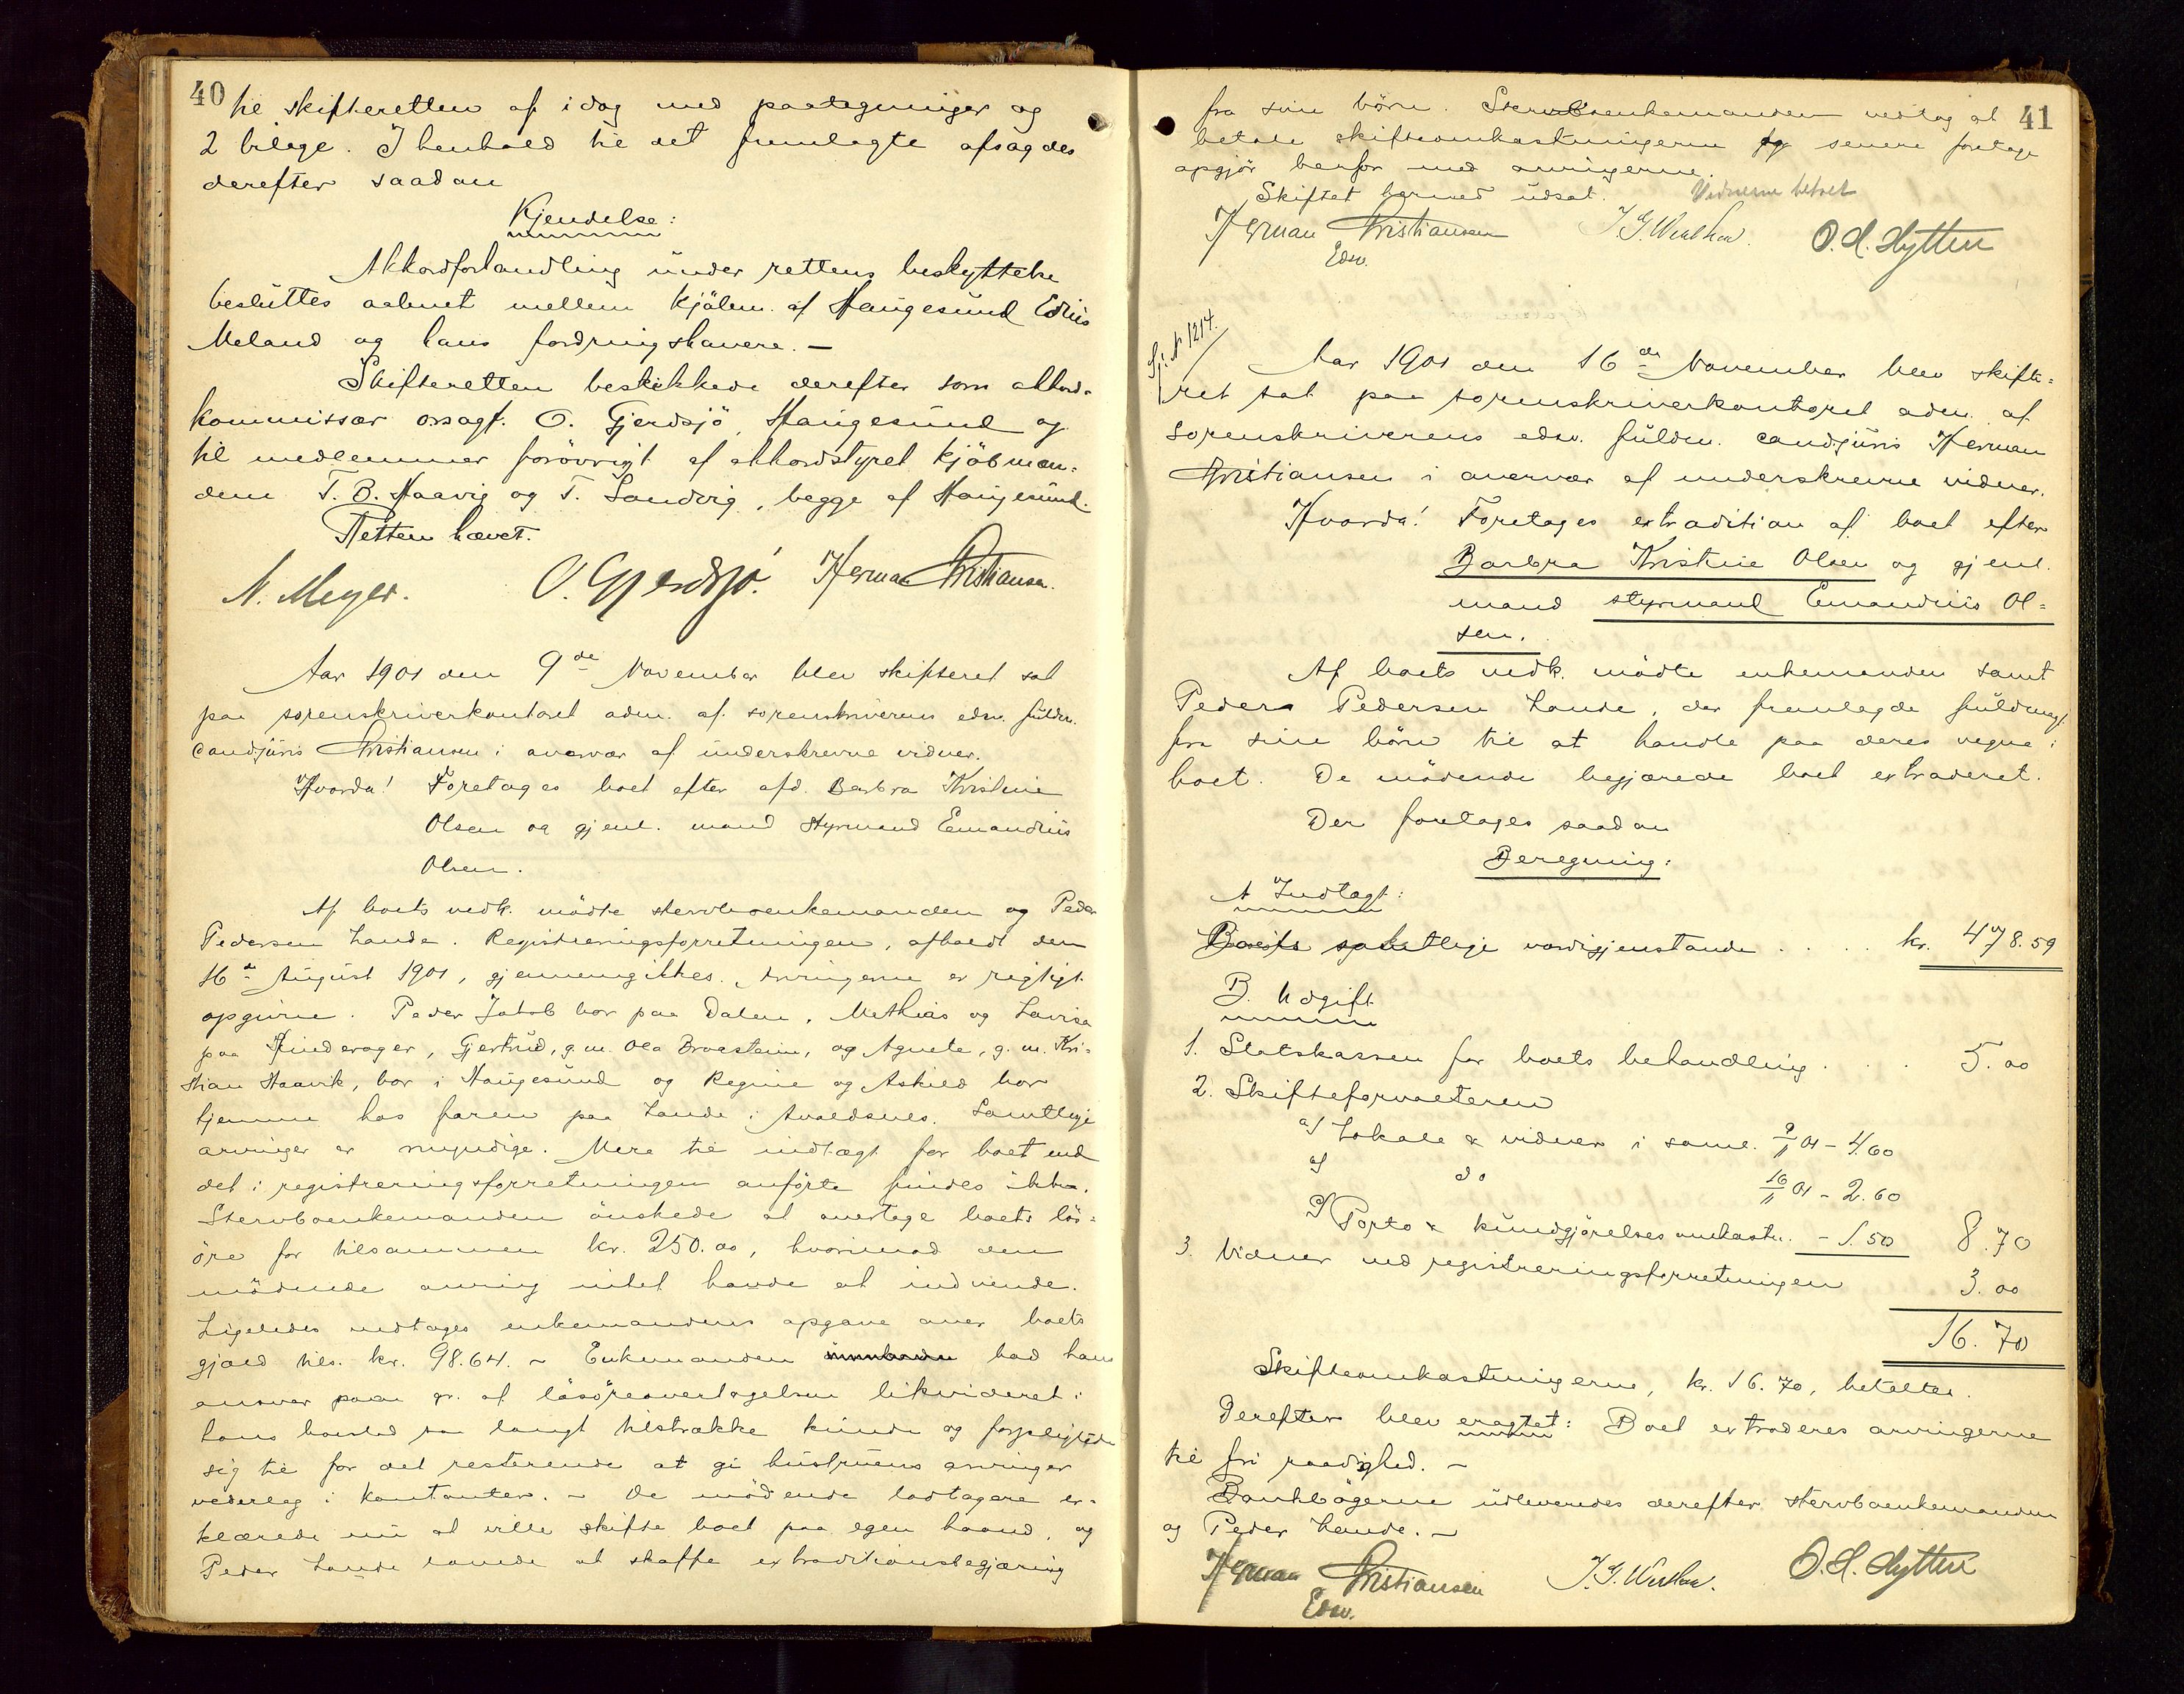 40
til skifteretten af idag med paategninger og
2 bilage. I henhold til det fremlagte afsagdes
derefter saadan
Kjendelse:
Akkordforhandling under rettens beskyttelse
besluttes aabnet mellem kjøbm. af Haugesund Edvin
Meland og hans fordringshavere. —
Skifteretten beskikkede derefter som akkord-
kommissær orsagf. O. Gjerdsjö, Haugesund og
til medlemmer forøvrigt af akkordstyret kjöbmæn-
dene T. B. Haavig og T. Sandvig, begge af Haugesund.
Retten hævet.
N. Meyer. O. Gjerdsjö. Herman Kristiansen.
Aar 1901 den 9de November blev skifteret sat
paa sorenskriverkontoret adm. af sorenskriverens edsv. fuldm.
cand. juris Kristiansen i overvær af underskrevne vidner.
Hvorda! Foretages boet efter afd. Barbra Kristine
Olsen og gjenl. mand styrmand Emandius
Olsen.
Af boets vedk. mödte stervboenkemanden og Peder
Pedersen Lande. Registreringsforretningen, afholdt den
16de August 1901, gjennemgikkes. Arvingerne er rigtigt
opgivne. Peder Jakob bor paa Dalen, Mathias og Lovisa
paa Hinderager, Gjertrud, g. m. Ola Braasteim, og Agnete, g. m. Kri-
stian Haavik, bor i Haugesund og Regine og Askild bor
hjemme hos faren paa Lande i Avaldsnes. Samtlige
arvinger er myndige. Mere til indtægt for boet end
det i registreringsforretningen anförte findes ikke.
Stervboenkemanden önskede at overtage boets lös-
öre for tilsammen kr. 250.00, hvorimod den
mödende arving intet havde at indvende.
Ligeledes vedtages enkemandens opgave over boets
gjæld tils. kr. 98.64. — Enkemanden bad hans
ansvar paa gr. af lösöreovertagelsen likvideret i
hans boslod saa langt tilstrække kunde og forpligtede
sig til for det resterende at gi hustruens arvinger
vederlag i kontanter. — De mödende lodtagere er-
klærede nu at ville skifte boet paa egen haand, og
Peder Lande lovede at skaffe extraditionsbegjæring
41
fra sine börn. Stervboenkemanden vedtog at
betale skifteomkostningerne og senere foretage
opgjör herfor med arvingerne.
Skiftet hermed udsat. Vidnerne betalt
Herman Kristiansen J. G. Wathne. O. H. Hytten
Edsv.
Sj. N 1214.
Aar 1901 den 16de November blev skifte-
ret sat paa sorenskriverkontoret adm. af
sorenskriverens edsv. fuldm. cand. juris Herman
Kristiansen i overvær af underskrevne vidner.
Hvorda! Foretages extradition af boet efter
Barbra Kristine Olsen og gjenl.
mand styrmand Emandius Ol-
sen.
Af boets vedk. mödte enkemanden samt
Peder Pedersen Lande, der fremlagde fuldmagt
fra sine börn til at handle paa deres vegne i
boet. De mödende begjærede boet extraderet.
Der foretages saadan
Beregning:
A Indtægt:
Boets samtlige værdigjenstande . . . . kr. 478.59
B. Udgift
1. Statskassen for boets behandling . . . 5.00
2. Skifteforvalteren
a) Lokale & vidner i saml. 9/11 01 - 4.60
a) do 16/11 01 - 2.60
c) Porto & kundgjörelsesomkostn. - 1.50 8.70
3. Vidner ved registreringsforretningen 3.00
16.70
Skifteomkostningerne, kr. 16.70, betaltes.
Derefter blev eragtet: Boet extraderes arvingerne
til fri raadighed. —
Bankbögerne udleveredes derefter stervboenkemanden
og Peder Lande. —
Herman Kristiansen J. G. Wathne. O. H. Hytten
Edsv.